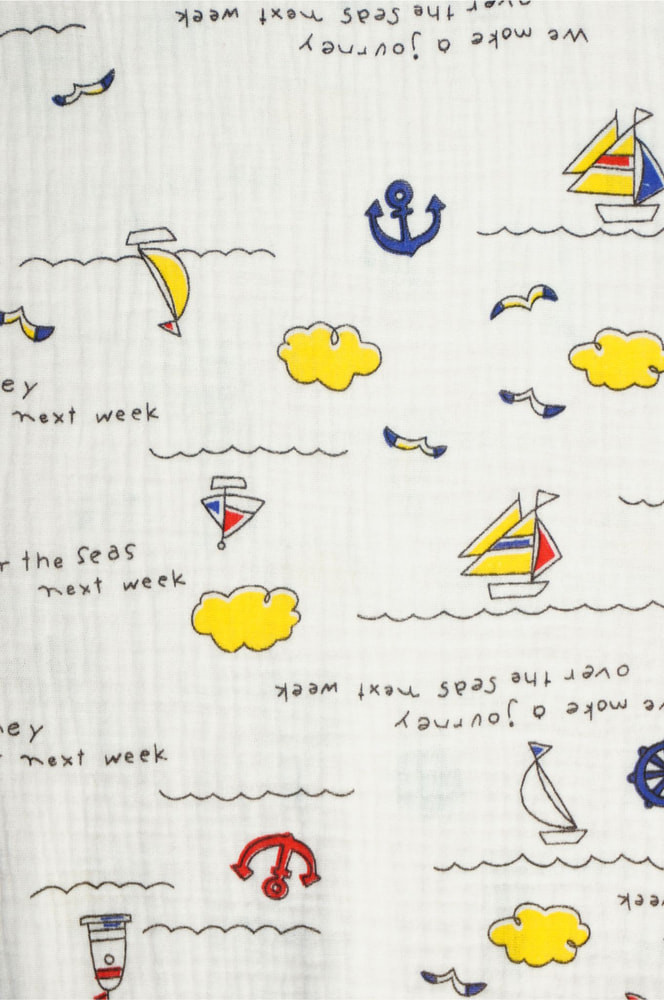 We make a journey
over the seas next week
ey
next week
r the seas
next week
we make a journey
over the seas next week
ney
next week
week